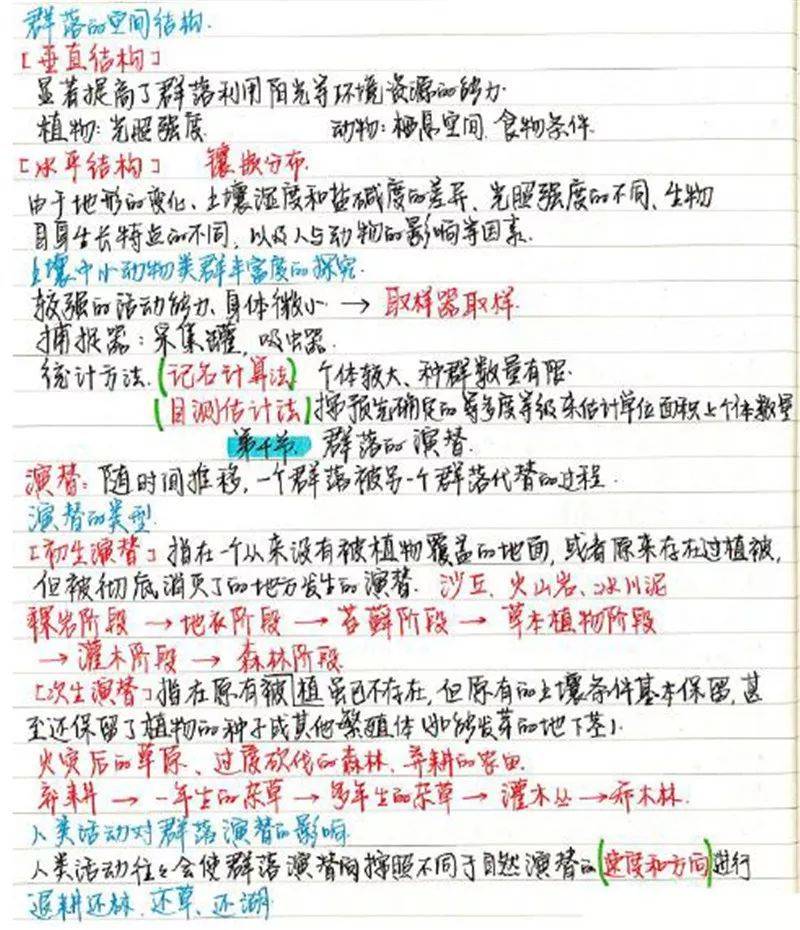 群落的空间结构.
[垂直结构]
显著提高了群落利用阳光等环境资源的能力
植物:光照强度 动物:栖息空间、食物条件.
[水平结构] 镶嵌分布.
由于地形的变化、土壤湿度和盐碱度的差异、光照强度的不同、生物
自身生长特点的不同,以及人与动物的影响等因素.
土壤中小动物类群丰富度的探究.
较强的活动能力、身体微小 → 取样器取样.
捕捉器:采集罐,吸虫器.
统计方法.(记名计算法) 个体较大、种群数量有限.
(目测估计法)按预先确定的多度等级来估计单位面积上个体数量
第4节 群落的演替.
演替:随时间推移,一个群落被另一个群落代替的过程.
演替的类型
[初生演替]指在一个从来没有被植物覆盖的地面,或者原来存在过植被,
但被彻底消灭了的地方发生的演替.沙丘、火山岩、冰川泥
裸岩阶段 → 地衣阶段 → 苔藓阶段 → 草本植物阶段
→ 灌木阶段 → 森林阶段
[次生演替]指在原有被植虽已不存在,但原有的土壤条件基本保留,甚
至还保留了植物的种子或其他繁殖体(如能发芽的地下茎).
火灾后的草原、过度砍伐的森林、弃耕的农田.
弃耕 → 一年生的杂草 → 多年生的杂草 → 灌木丛 → 乔木林.
人类活动对群落演替的影响.
人类活动往往会使群落演替按照不同于自然演替的(速度和方向)进行
退耕还林、还草、还湖